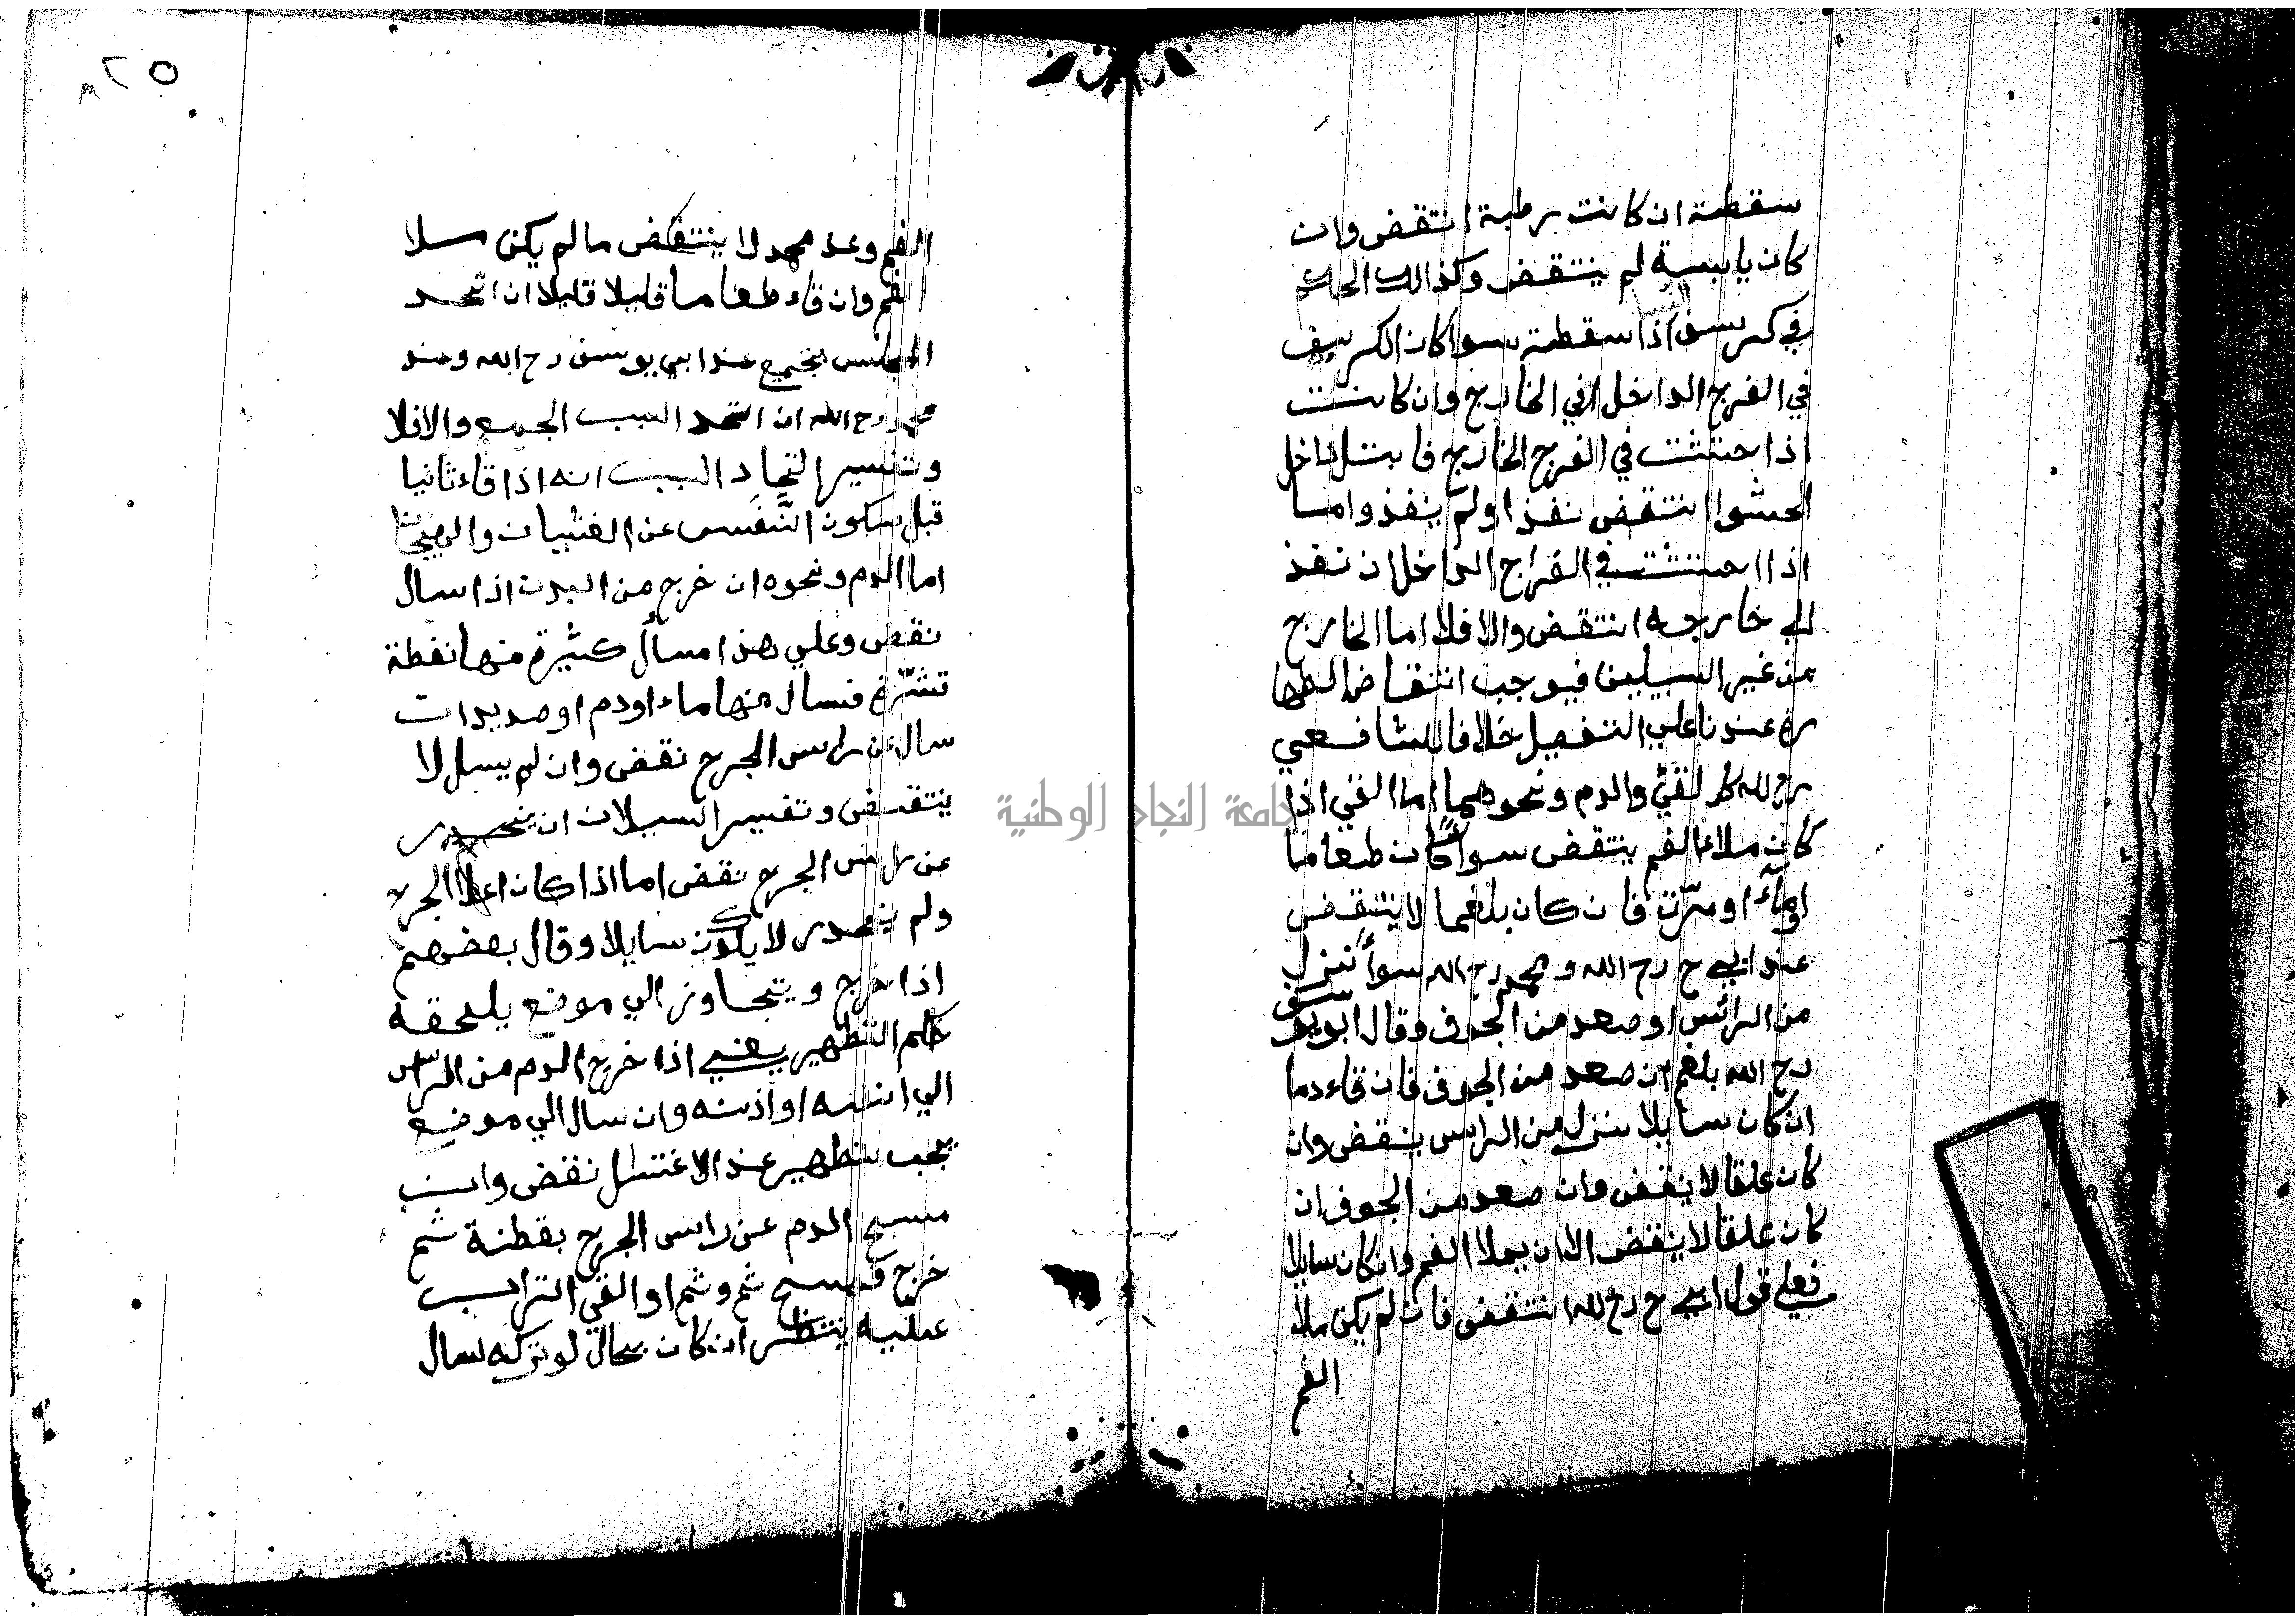 سقطة ان كانت رطبة انتقض وان
كان يابسة لم ينتقض وكذالك الحال
في كرسف اذا سقطة سوا كان الكرسف
في الفرج الداخل او في الخارج وان كانت
اذا حتشت في الفرج الخارج فابتل داخل
الحشوا انتقض نفذ او لم ينفذ واما
اذا احتشت في الفرج الداخل ان نفذ
الي خارجه انتقض والا فلا اما الخارج
من غير السبيلين فيوجب انتقاض الطها
رة عندنا علي التفصيل خلافا للشافعي
رح الله كالقئ والدم ونحوهما اما القي اذا
كان ملاء الفم ينتقض سوا كان طعاما
او ماء او مرّة فان كان بلغما لا ينتقض
عند ابي ح رح الله ومحمد رح الله سوأ نزل
من الرائس او صعد من الجوف وقال ابو يوسف
رح الله بلغم ان صعد من الجوف فان قاء دما
ان كان سايلا نزل من الراس ينقض وان
كان علقا لا ينقض وان صعد من الجوف ان
كان علقا لا ينقض الا ان يملا الفم وان كان سايلا
فعلي قول ابي ح رح الله انتقض فان لم يكن ملا
الفم
٢٥
الفم وعند محمد لا ينتقض ما لم يكن ملا
الفم وان قاء طعاما قليلا قليلا ان اتحد
المجلس يجمع عند ابي يوسف رح الله وعند
محمد رح الله ان اتحد السبب الجمع والا فلا
وتفسير اتحاد السبب انه اذا قاء ثانيا
قبل سكون النَّفَس عن الغثيان والهيجان
اما الدم ونحوه ان خرج من البدن اذا سال
نقض وعلي هذا مسأل كثيرة منها نفطة
تشرّة فسال منها ماء او دم او صديد ان
سال عن راس الجرح نقض وان لم يسل لا
ينتقض وتفسير السيلان ان ينحدر
عن راس الجرح نقض اما اذا كان علا الجرح
ولم ينحدر لا يكون سايلا وقال بعضهم
اذا خرج ويتجاوز الي موضع يلحقه
حكم التطهير يعني اذا خرج الدم من الراس
الي انفه او اذنه وان سال الي موضع
يجب تطهير عند الاغتسل نقض وان
مسح الدم عن راس الجرح بقطنة ثم
خرج فمسح ثم وثم او القي التراب
عليه ينتظر ان كان بحال لو تركه سال
جامعة النجاح الوطنية